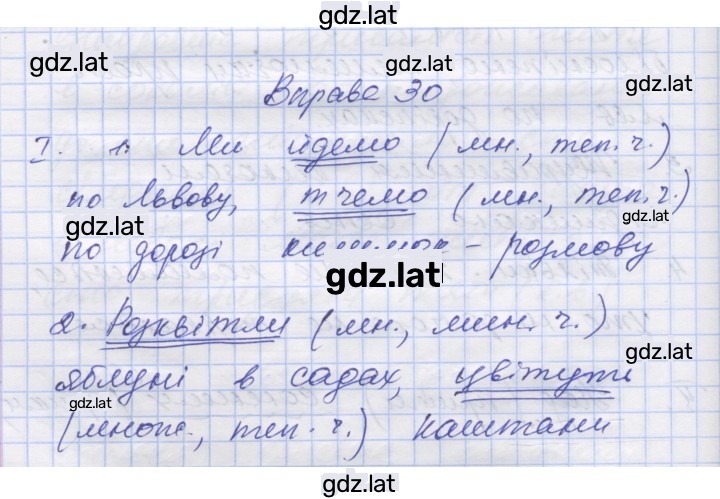 gdz.lat
gdz.lat
gdz.lat
gdz.lat
Вправа 30
I. 1. Ми йдемо (мн., теп. ч.)
по Львову, тчемо (мн., теп. ч.)
gdz.lat
gdz.lat
по дорозі - розмову
gdz.lat
2. Розквітли (мн., мин. ч.)
gdz.lat
яблуні в садах, цвітуть
gdz.lat
(множ., теп. ч.) каштани
gdz.lat
gdz.lat